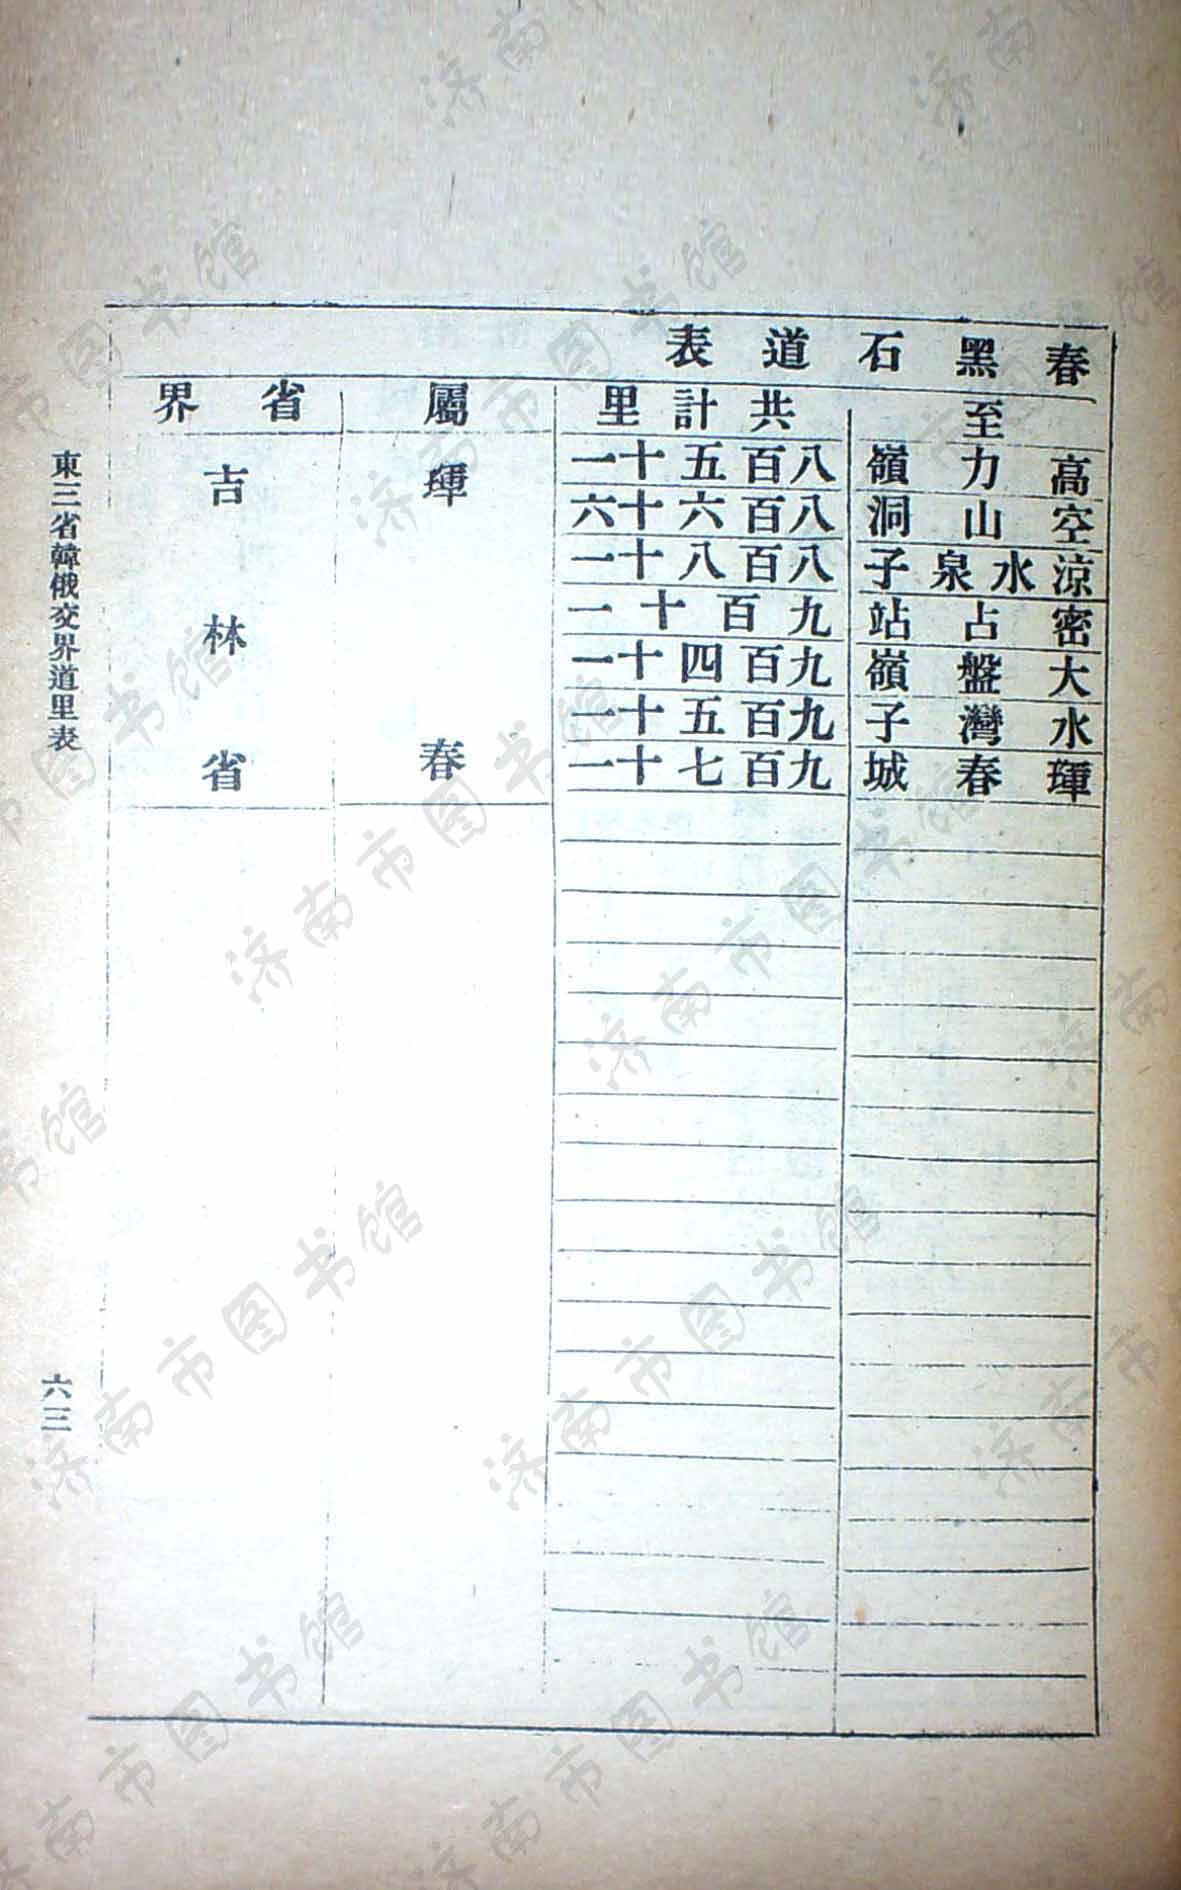 春黑石道表
至 共計里 屬 省界
高力嶺 八百五十一 琿春 吉林省
空山洞 八百六十六
涼水泉子 八百八十一
密占站 九百十一
大盤嶺 九百四十一
水灣子 九百五十一
琿春城 九百七十一
東三省韓俄交界道里表
六三
济南市图书馆